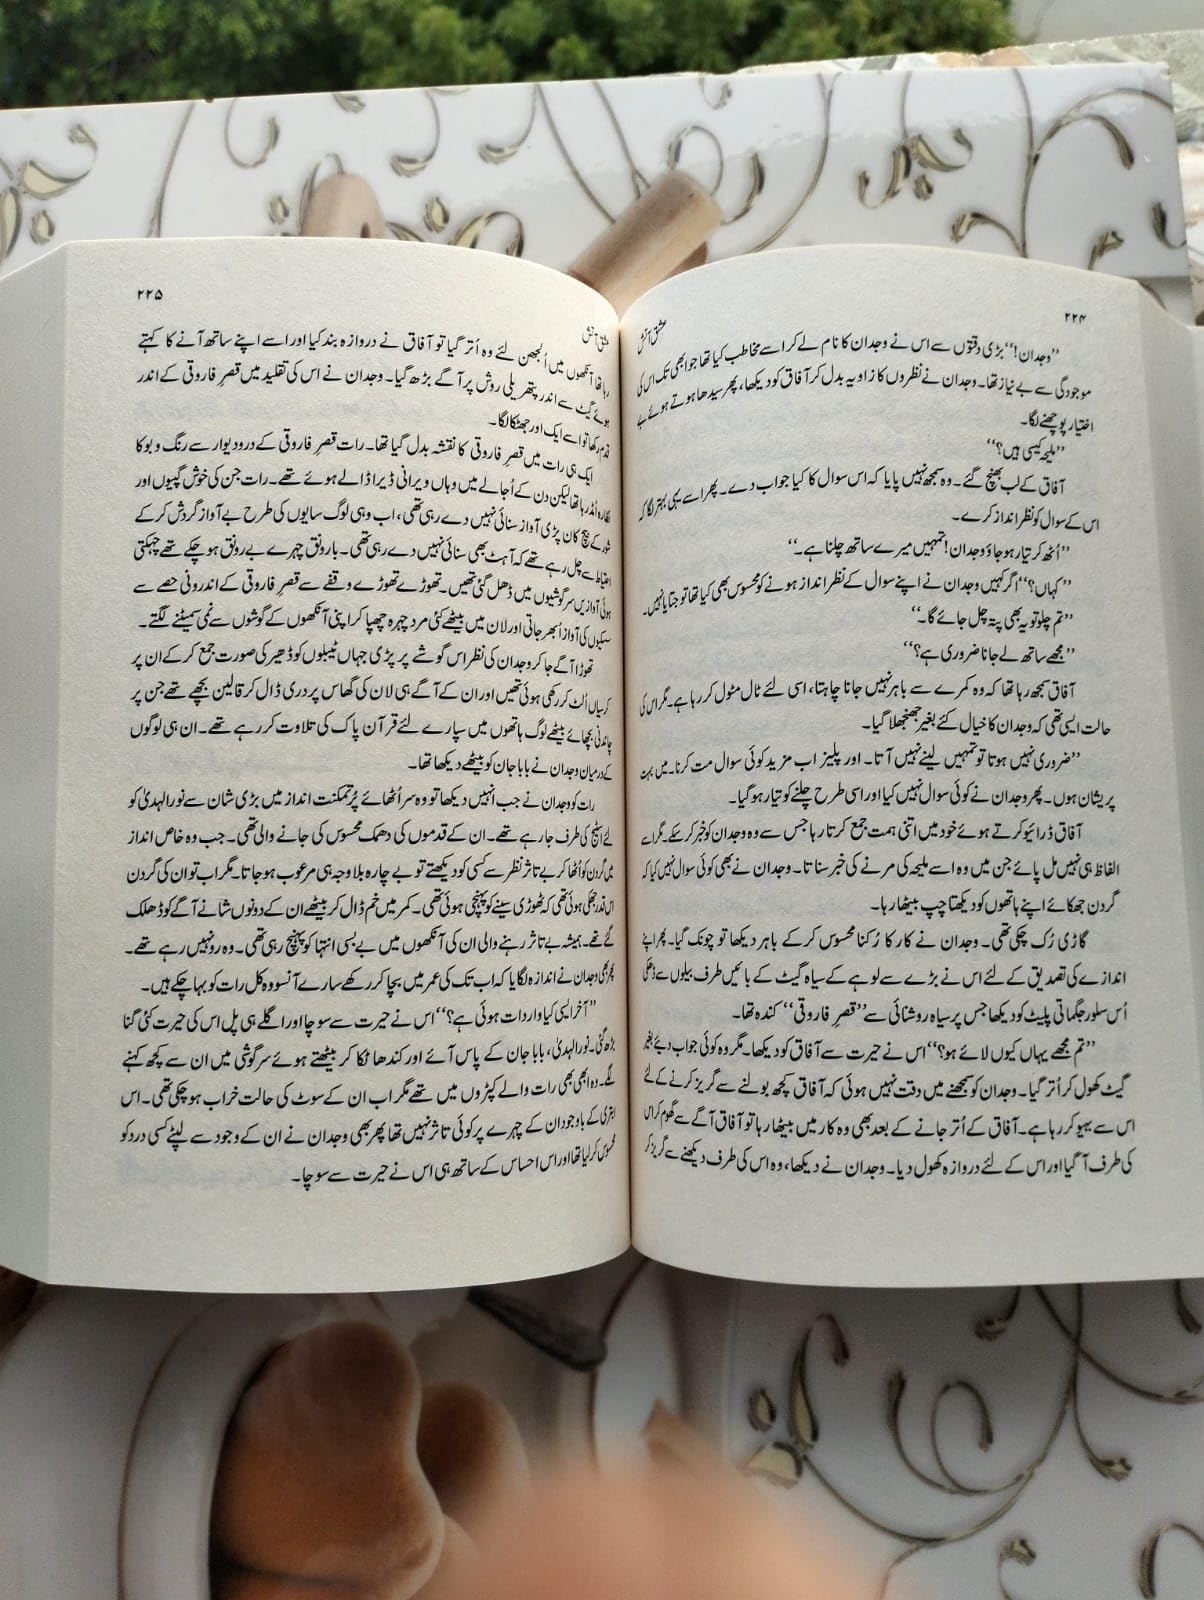 ۲۲۴
عشق آتش
”وجدان!“ بڑی دقتوں سے اس نے وجدان کا نام لے کر اسے مخاطب کیا تھا جو ابھی تک اس کی
موجودگی سے بے نیاز تھا۔ وجدان نے نظروں کا زاویہ بدل کر آفاق کو دیکھا، پھر سیدھا ہوتے ہوئے بے
اختیار پوچھنے لگا۔
”ملیحہ کیسی ہیں؟“
آفاق کے لب بھنچ گئے۔ وہ سمجھ نہیں پایا کہ اس سوال کا کیا جواب دے۔ پھر اسے یہی بہتر لگا کہ
اس کے سوال کو نظر انداز کرے۔
”اُٹھ کر تیار ہو جاؤ وجدان! تمہیں میرے ساتھ چلنا ہے۔“
”کہاں؟“ اگر کہیں وجدان نے اپنے سوال کے نظر انداز ہونے کو محسوس بھی کیا تھا تو جتایا نہیں۔
”تم چلو تو یہ بھی پتہ چل جائے گا۔“
”مجھے ساتھ لے جانا ضروری ہے؟“
آفاق سمجھ رہا تھا کہ وہ کمرے سے باہر نہیں جانا چاہتا، اسی لئے ٹال مٹول کر رہا ہے۔ مگر اس کی
حالت ایسی تھی کہ وجدان کا خیال کئے بغیر جھنجھلا گیا۔
”ضروری نہیں ہوتا تو تمہیں لینے نہیں آتا۔ اور پلیز اب مزید کوئی سوال مت کرنا۔ میں بہت
پریشان ہوں۔ پھر وجدان نے کوئی سوال نہیں کیا اور اسی طرح چلنے کو تیار ہو گیا۔
آفاق ڈرائیو کرتے ہوئے خود میں اتنی ہمت جمع کرتا رہا جس سے وہ وجدان کو خبر کر سکے۔ مگر اسے
الفاظ ہی نہیں مل پائے جن میں وہ اسے ملیحہ کی مرنے کی خبر سناتا۔ وجدان نے بھی کوئی سوال نہیں کیا کہ
گردن جھکائے اپنے ہاتھوں کو دیکھتا چپ بیٹھا رہا۔
گاڑی رُک چکی تھی۔ وجدان نے کار کا رُکنا محسوس کر کے باہر دیکھا تو چونک گیا۔ پھر اپنے
اندازے کی تصدیق کے لئے اس نے بڑے سے لوہے کے سیاہ گیٹ کے بائیں طرف بیلوں سے ڈھکی
اُس سلور جگمگاتی پلیٹ کو دیکھا جس پر سیاہ روشنائی سے ”قصرِ فاروقی“ کندہ تھا۔
”تم مجھے یہاں کیوں لائے ہو؟“ اس نے حیرت سے آفاق کو دیکھا۔ مگر وہ کوئی جواب دیئے بغیر
گیٹ کھول کر اُتر گیا۔ وجدان کو سمجھنے میں دقت نہیں ہوئی کہ آفاق کچھ بولنے سے گریز کرنے کے لئے
اس سے یہ ہو کر رہا ہے۔ آفاق کے اُتر جانے کے بعد بھی وہ کار میں بیٹھا رہا تو آفاق آگے سے گھوم کر اس
کی طرف آ گیا اور اس کے لئے دروازہ کھول دیا۔ وجدان نے دیکھا، وہ اس کی طرف دیکھنے سے گریز کر
۲۲۵
عشق آتش
رہا تھا آنکھوں میں اُلجھن لئے وہ اُتر گیا تو آفاق نے دروازہ بند کیا اور اسے اپنے ساتھ آنے کا کہتے
ہوئے گیٹ سے اندر پتھریلی روش پر آگے بڑھ گیا۔ وجدان نے اس کی تقلید میں قصرِ فاروقی کے اندر
قدم رکھا تو اسے ایک اور جھٹکا لگا۔
ایک ہی رات میں قصرِ فاروقی کا نقشہ بدل گیا تھا۔ رات قصرِ فاروقی کے در و دیوار سے رنگ و بو کا
نظارہ اُمڈ رہا تھا لیکن دن کے اُجالے میں وہاں ویرانی ڈیرا ڈالے ہوئے تھے۔ رات جن کی خوش گپیوں اور
شور کے بیچ کان پڑی آواز سنائی نہیں دے رہی تھی، اب وہی لوگ سایوں کی طرح بے آواز گردش کر کے
احتیاط سے چل رہے تھے کہ آہٹ بھی سنائی نہیں دے رہی تھی۔ بارونق چہرے بے رونق ہو چکے تھے چہکتی
ہوئی آوازیں سرگوشیوں میں ڈھل گئی تھیں۔ تھوڑے تھوڑے وقفے سے قصرِ فاروقی کے اندرونی حصے سے
سسکیوں کی آواز اُبھر جاتی اور لان میں بیٹھے کئی مرد چہرہ چھپا کر اپنی آنکھوں کے گوشوں سے نمی سمیٹنے لگتے۔
تھوڑا آگے جا کر وجدان کی نظر اس گوشے پر پڑی جہاں ٹیبلوں کو ڈھیر کی صورت جمع کر کے ان پر
کرسیاں اُلٹ کر رکھی ہوئی تھیں اور ان کے آگے ہی لان کی گھاس پر دری ڈال کر قالین بچھے تھے جن پر
چاندنی بچھائے بیٹھے لوگ ہاتھوں میں سپارے لئے قرآن پاک کی تلاوت کر رہے تھے۔ ان ہی لوگوں
کے درمیان وجدان نے بابا جان کو بیٹھے دیکھا تھا۔
رات کو وجدان نے جب انہیں دیکھا تو وہ سر اُٹھائے پُرتمکنت انداز میں بڑی شان سے نور الہدیٰ کو
لئے اسٹیج کی طرف جا رہے تھے۔ ان کے قدموں کی دھمک محسوس کی جانے والی تھی۔ جب وہ خاص انداز
میں گردن کو اُٹھا کر بے تاثر نظر سے کسی کو دیکھتے تو بے چارہ بلاوجہ ہی مرعوب ہو جاتا۔ مگر اب تو ان کی گردن
اس قدر جھکی ہوئی تھی کہ ٹھوڑی سینے کو پہنچی ہوئی تھی۔ کمر میں خم ڈال کر بیٹھے ان کے دونوں شانے آگے کو ڈھلک
گئے تھے۔ ہمیشہ بے تاثر رہنے والی ان کی آنکھوں میں بے بسی انتہا کو پہنچ رہی تھی۔ وہ رو نہیں رہے تھے۔
پھر بھی وجدان نے اندازہ لگایا کہ اب تک کی عمر میں بچا کر رکھے سارے آنسو وہ کل رات کو بہا چکے ہیں۔
”آخر ایسی کیا واردات ہوئی ہے؟“ اس نے حیرت سے سوچا اور اگلے ہی پل اس کی حیرت کئی گنا
بڑھ گئی۔ نور الہدیٰ، بابا جان کے پاس آئے اور کندھا ٹکا کر بیٹھتے ہوئے سرگوشی میں ان سے کچھ کہنے
لگے۔ وہ ابھی بھی رات والے کپڑوں میں تھے مگر اب ان کے سوٹ کی حالت خراب ہو چکی تھی۔ اس
ابتری کے باوجود ان کے چہرے پر کوئی تاثر نہیں تھا پھر بھی وجدان نے ان کے وجود سے لپٹے کسی درد کو
محسوس کر لیا تھا اور اس احساس کے ساتھ ہی اس نے حیرت سے سوچا۔